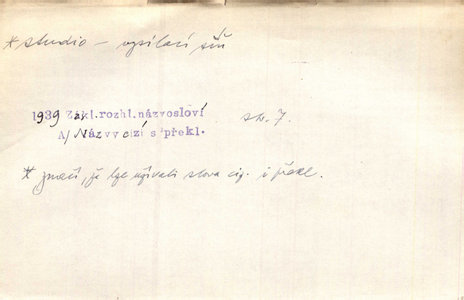 * studio – vysílací síň
1939 Zákl.rozhl.názvosloví str. 7.
A/ Názvy cizí s překl.
* značí, že lze užívati slova ciz. i překl.